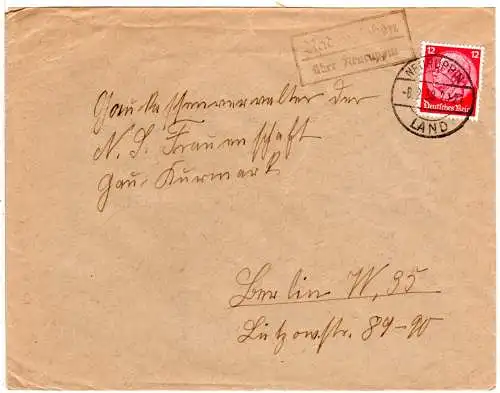 über Neuruppin
NEURUPPIN
LAND
12 12
Deutsches Reich
Gau-Kassenverwalter der
N. S. Frauenschaft
Gau-Kurmark
Berlin W, 35
Lützowstr. 89-90